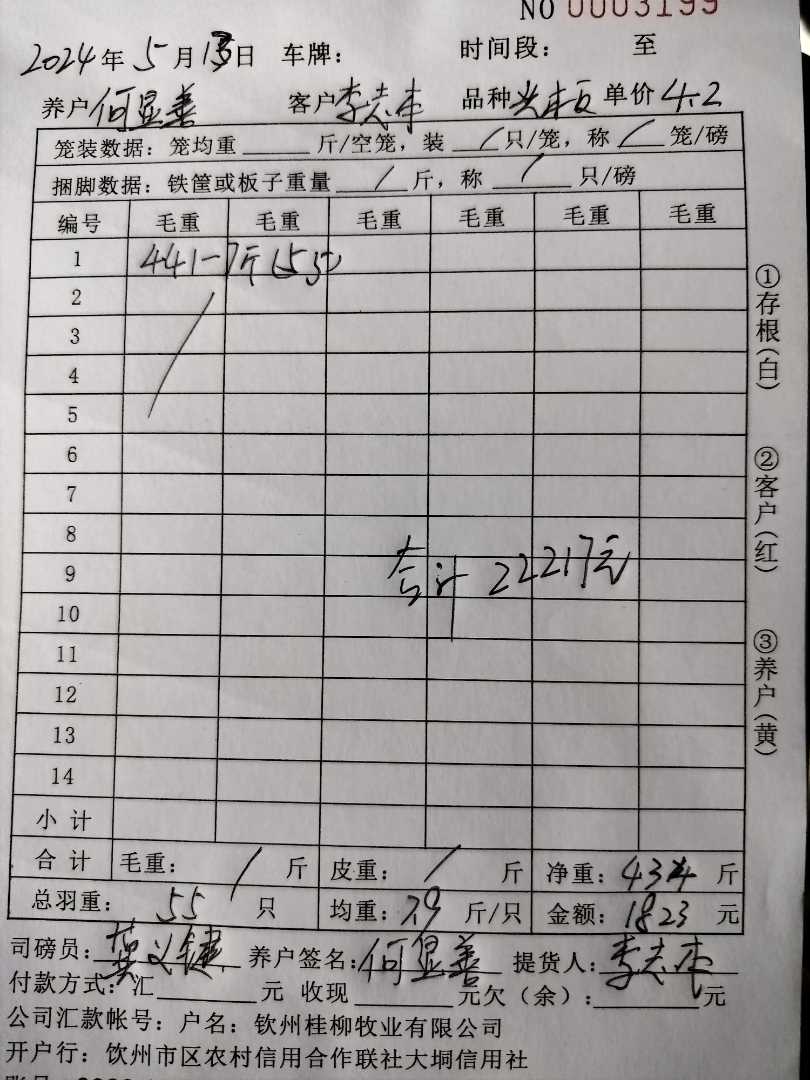 NO 0003199
2024年5月13日 车牌: 时间段: 至
养户何显善 客户李志本 品种 单价4.2
笼装数据: 笼均重 斤/空笼, 装 / 只/笼, 称 / 笼/磅
捆脚数据: 铁筐或板子重量 / 斤, 称 / 只/磅
编号 毛重 毛重 毛重 毛重 毛重 毛重
1 441-7斤(55只)
2
3
4
5
6
7
8
9 合计 22217元
10
11
12
13
14
小计
合计 毛重: / 斤 皮重: / 斤 净重: 434 斤
总羽重: 55 只 均重: 7.9 斤/只 金额: 1823 元
司磅员: 养户签名: 何显善 提货人: 李志本
付款方式: 汇 元 收现 元欠(余): 元
公司汇款帐号: 户名: 钦州桂柳牧业有限公司
开户行: 钦州市区农村信用合作联社大垌信用社
①存根(白)
②客户(红)
③养户(黄)